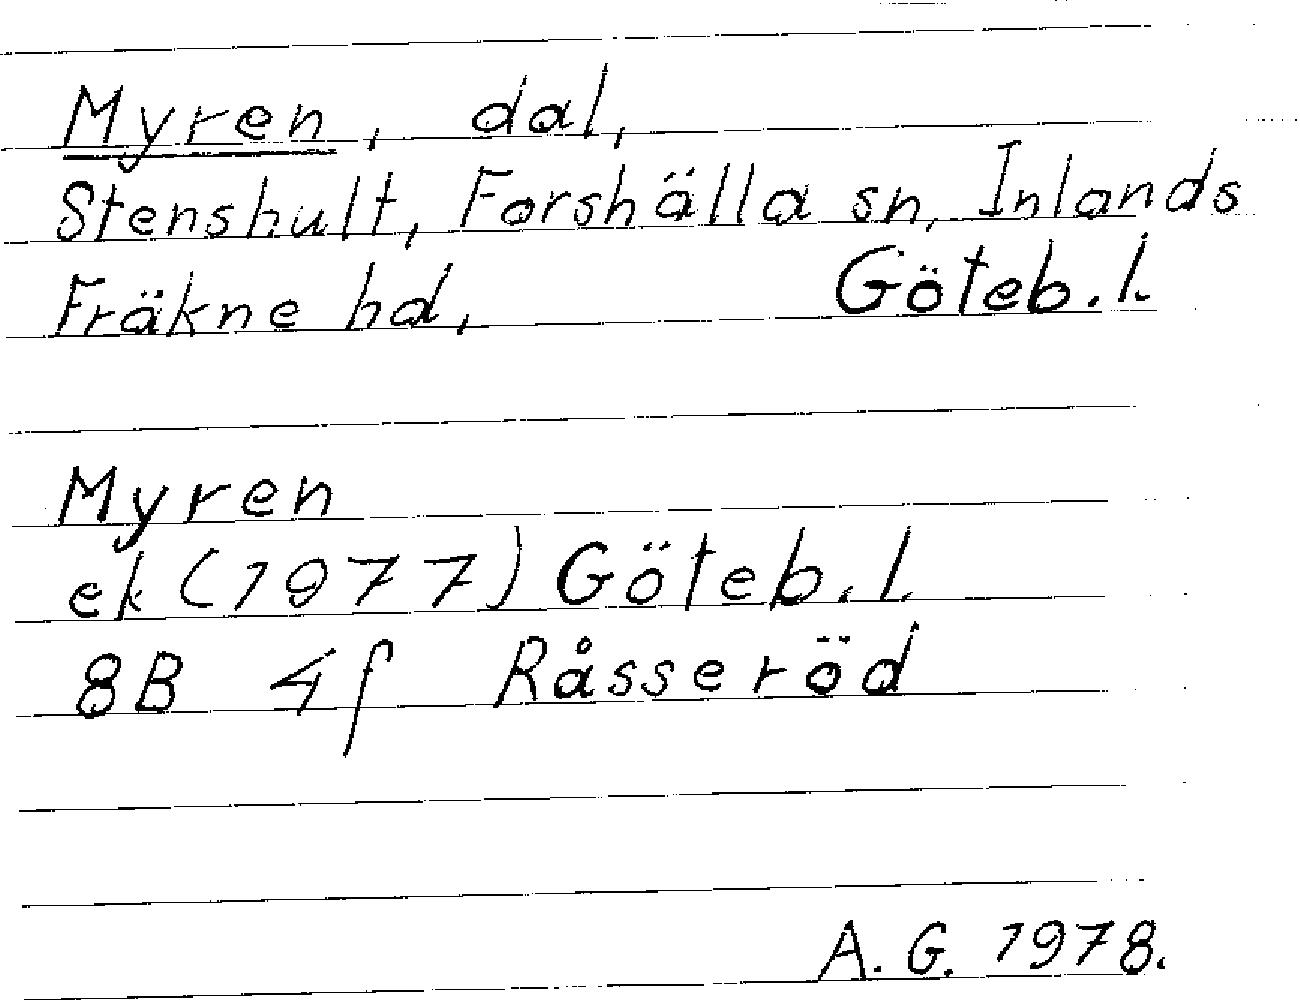 Myren, dal,
Stenshult, Forshälla sn, Inlands
Fräkne hd, Göteb. l.
Myren
ek (1977) Göteb. l.
8B 4f Råsseröd
A. G. 1978.